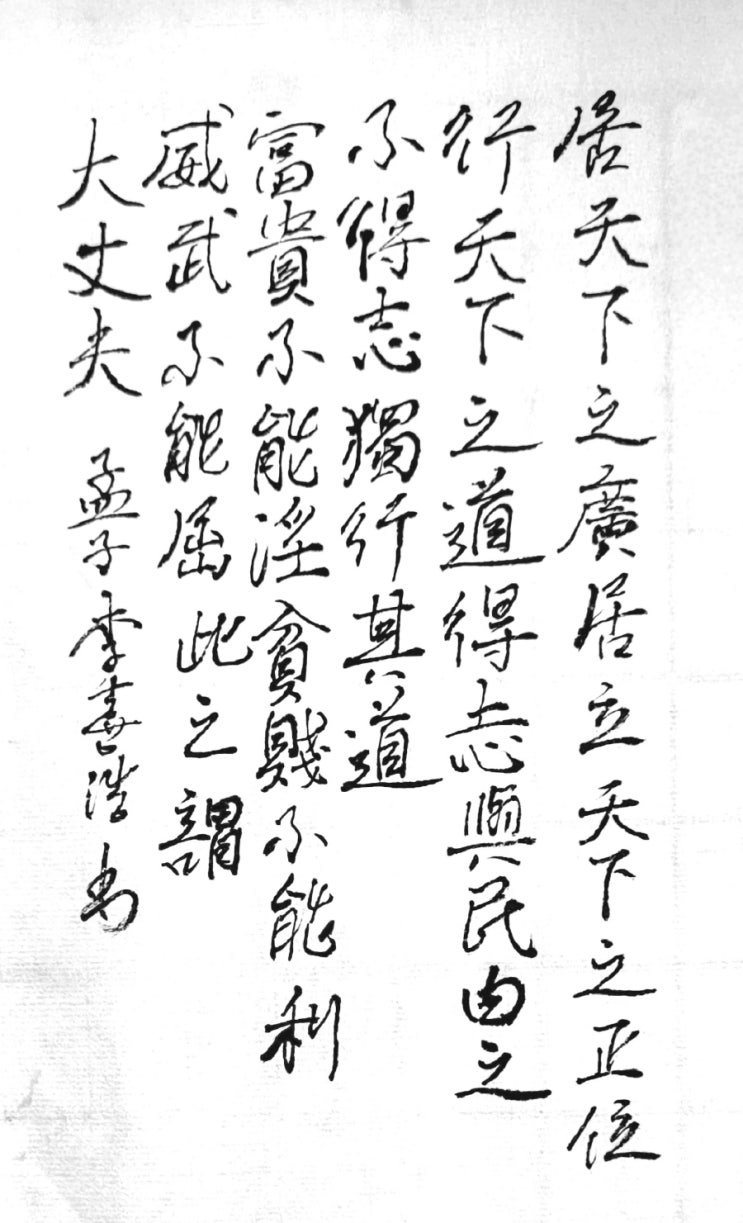 居天下之廣居立天下之正位
行天下之道得志與民由之
不得志獨行其道
富貴不能淫貧賤不能利
威武不能屈此之謂
大丈夫 孟子李浩书